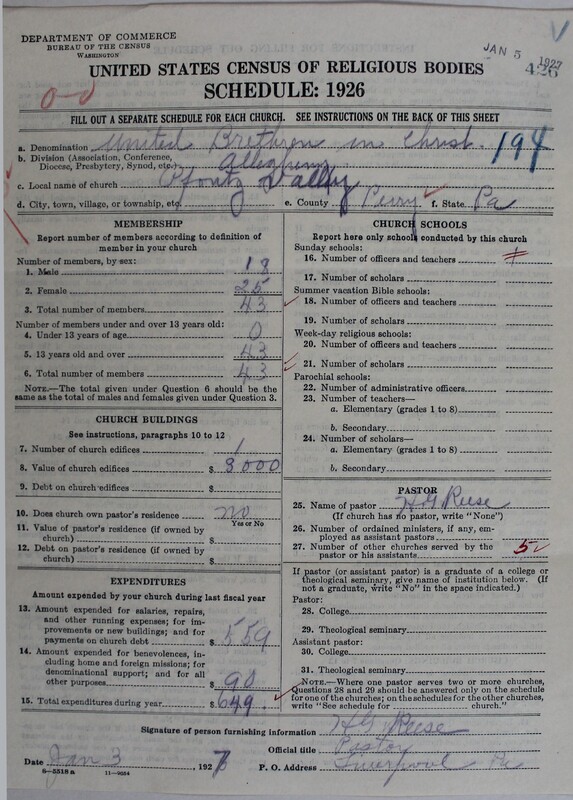 DEPARTMENT OF COMMERCE
BUREAU OF THE CENSUS
WASHINGTON
JAN 5 1927
426
UNITED STATES CENSUS OF RELIGIOUS BODIES
SCHEDULE: 1926
FILL OUT A SEPARATE SCHEDULE FOR EACH CHURCH. SEE INSTRUCTIONS ON THE BACK OF THIS SHEET
a. Denomination United Brethren in Christ. 194
b. Division (Association, Conference,
Diocese, Presbytery, Synod, etc.) Allegheny
c. Local name of church Pfoutz Valley
d. City, town, village, or township, etc. e. County Perry f. State Pa
MEMBERSHIP
Report number of members according to definition of
member in your church
Number of members, by sex:
1. Male 18
2. Female 25
3. Total number of members 43
Number of members under and over 13 years old:
4. Under 13 years of age 0
5. 13 years old and over 43
6. Total number of members 43
NOTE.—The total given under Question 6 should be
same as the total of males and females given under Question 3.
CHURCH BUILDINGS
See instructions, paragraphs 10 to 12
7. Number of church edifices 1
8. Value of church edifices $ 3000
9. Debt on church edifices $
10. Does church own pastor's residence no
Yes or No
11. Value of pastor's residence (if owned by
church) $
12. Debt on pastor's residence (if owned by
church) $
EXPENDITURES
Amount expended by your church during last fiscal year
13. Amount expended for salaries, repairs,
and other running expenses; for im-
provements or new buildings; and for
payments on church debt $ 559
14. Amount expended for benevolences, in-
cluding home and foreign missions; for
denominational support; and for all
other purposes $ 90
15. Total expenditures during year $ 649.
CHURCH SCHOOLS
Report here only schools conducted by this church
Sunday schools:
16. Number of officers and teachers
17. Number of scholars
Summer vacation Bible schools:
18. Number of officers and teachers
19. Number of scholars
Week-day religious schools:
20. Number of officers and teachers
21. Number of scholars
Parochial schools:
22. Number of administrative officers
23. Number of teachers—
a. Elementary (grades 1 to 8)
b. Secondary
24. Number of scholars—
a. Elementary (grades 1 to 8)
b. Secondary
PASTOR
25. Name of pastor H G Reese
(If church has no pastor, write "None")
26. Number of ordained ministers, if any, em-
ployed as assistant pastors
27. Number of other churches served by the
pastor or his assistants 5
If pastor (or assistant pastor) is a graduate of a college or
theological seminary, give name of institution below. (If
not a graduate, write "No" in the space indicated.)
Pastor:
28. College
29. Theological seminary
Assistant pastor:
30. College
31. Theological seminary
NOTE.—Where one pastor serves two or more churches,
Questions 28 and 29 should be answered only on the schedule
for one of the churches; on the schedules for the other churches,
write "See schedule for church."
Signature of person furnishing information H G Reese
Official title Pastor
Date Jan 3 1927 P. O. Address Liverpool Pa
8—5518 a 11—9054